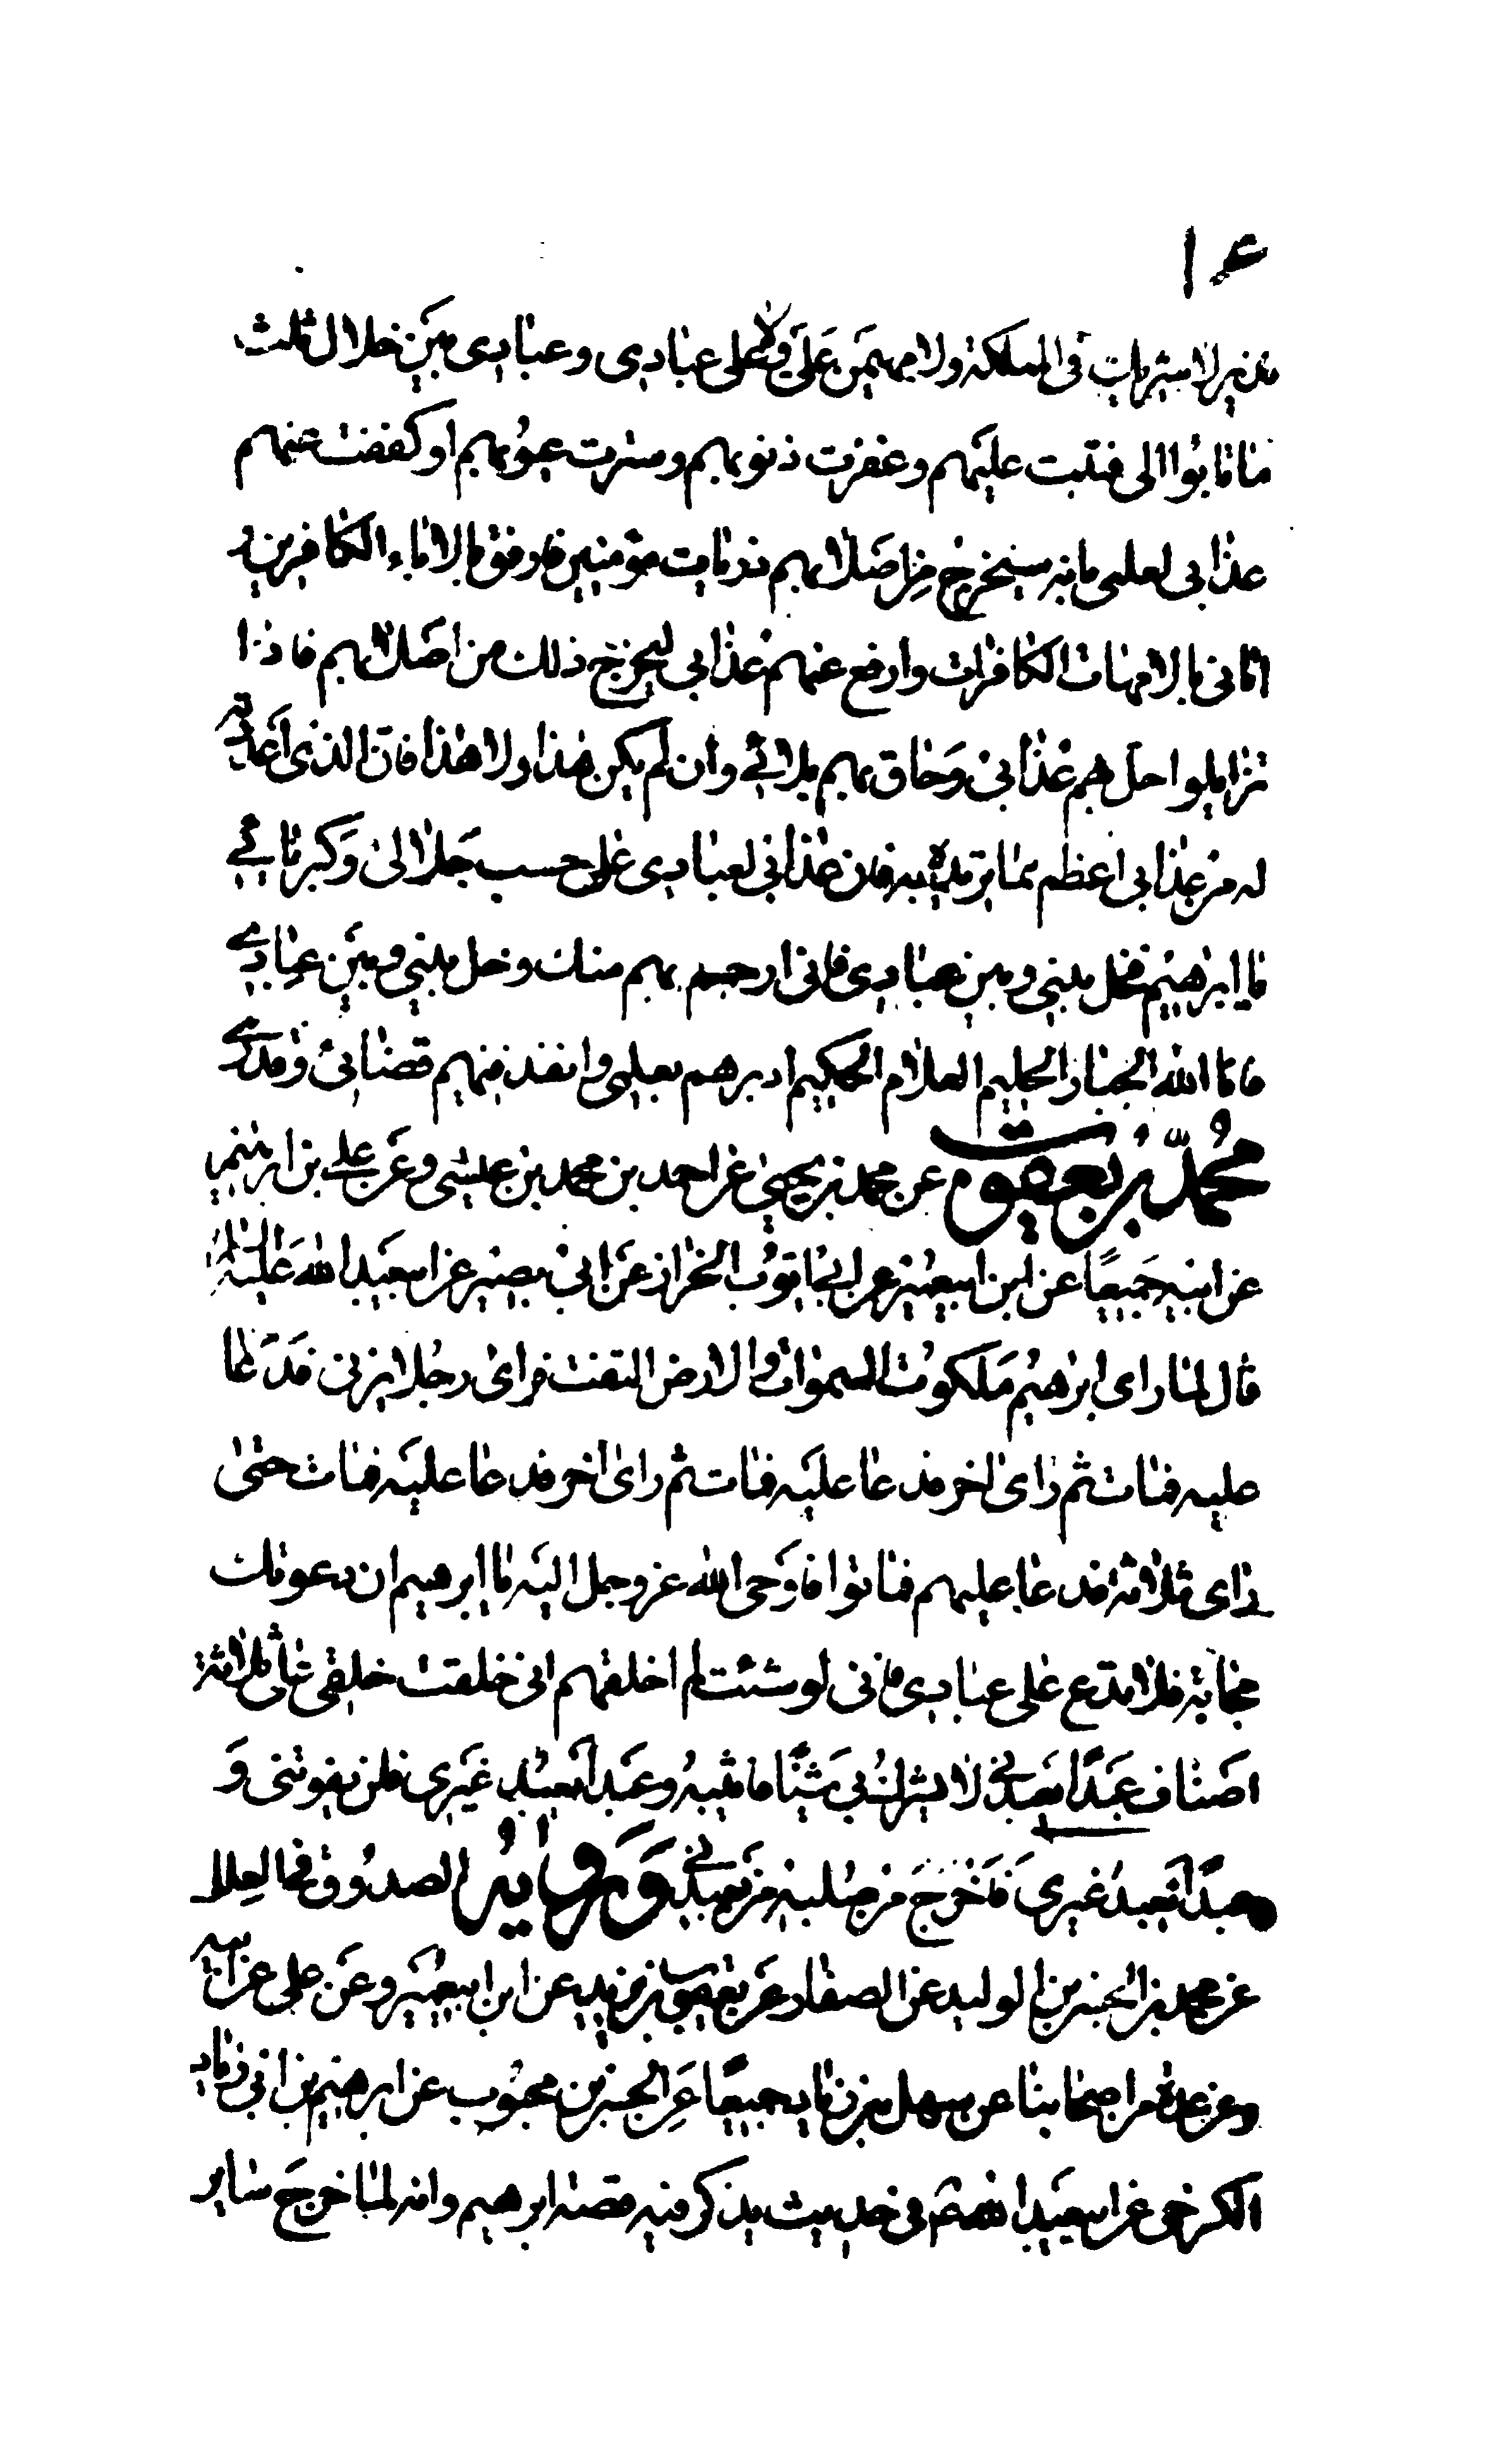 ع ١
نذير لا شريك في المملكة ولا مهيمن علي ولا على عبادي وعبادي بين خلال ثلث
اما تابوا الى فتبت عليهم وغفرت ذنوبهم وسترت عيوبهم او كففت عنهم
عذابى لعلمى بانه سيخرج من اصلابهم ذريات مؤمنين فارفق بالاباء الكافرين و
اتانى بالامهات الكافرات وارفع عنهم عذابى ليخرج ذلك من اصلابهم فاذا
تزايلوا حل بهم عذابى وحاق بهم بلائي وان لم يكن هذا ولا هذا فان الذى اعددته
له من عذابى اعظم مما تريده به فان عذابى لعبادى على حسب جلالى وكبريائي
يا ابرهيم فخل بينى وبين عبادى فانى ارحم بهم منك وخل بينى وبين عبادي
فانا الله الجبار الحليم العلام الحكيم ادبرهم بعلمى وانفذ فيهم قضائى وقدري
محمد بن يعقوب عن محمد بن يحيى عن احمد بن محمد بن عيسى وعن علي بن ابرهيم
عن ابيه جميعا عن ابن ابي عمير عن ابي ايوب الخزاز عن ابي بصير عن ابي عبد الله عليه السلام
قال لما راى ابرهيم ملكوت السموات والارض التفت فراى رجلا يزنى فدعا
عليه فمات ثم راى اخر فدعا عليه فمات ثم راى اخر فدعا عليه فمات حتى
راى ثلاثة فدعا عليهم فماتوا فاوحى الله عز وجل اليه يا ابرهيم ان دعوتك
مجابة فلا تدع على عبادى فانى لو شئت لم اخلقهم انى خلقت خلقى على ثلاثة
اصناف عبدا يعبدني لا يشرك بي شيئا فاثيبه وعبدا يعبد غيرى فلن يفوتنى و
عبدا يعبد غيري فاخرج من صلبه من يعبدني ورواه الصدوق في العلل
عن محمد بن الحسن بن الوليد عن الصفار عن يعقوب بن يزيد عن ابن ابي عمير وعن علي عن ابيه
وعن عدة من اصحابنا عن سهل بن زياد جميعا عن الحسن بن محبوب عن ابرهيم بن ابي زياد
الكرخي عن ابي عبد الله ع في حديث يذكر فيه قصة ابرهيم وانه لما خرج سايرا